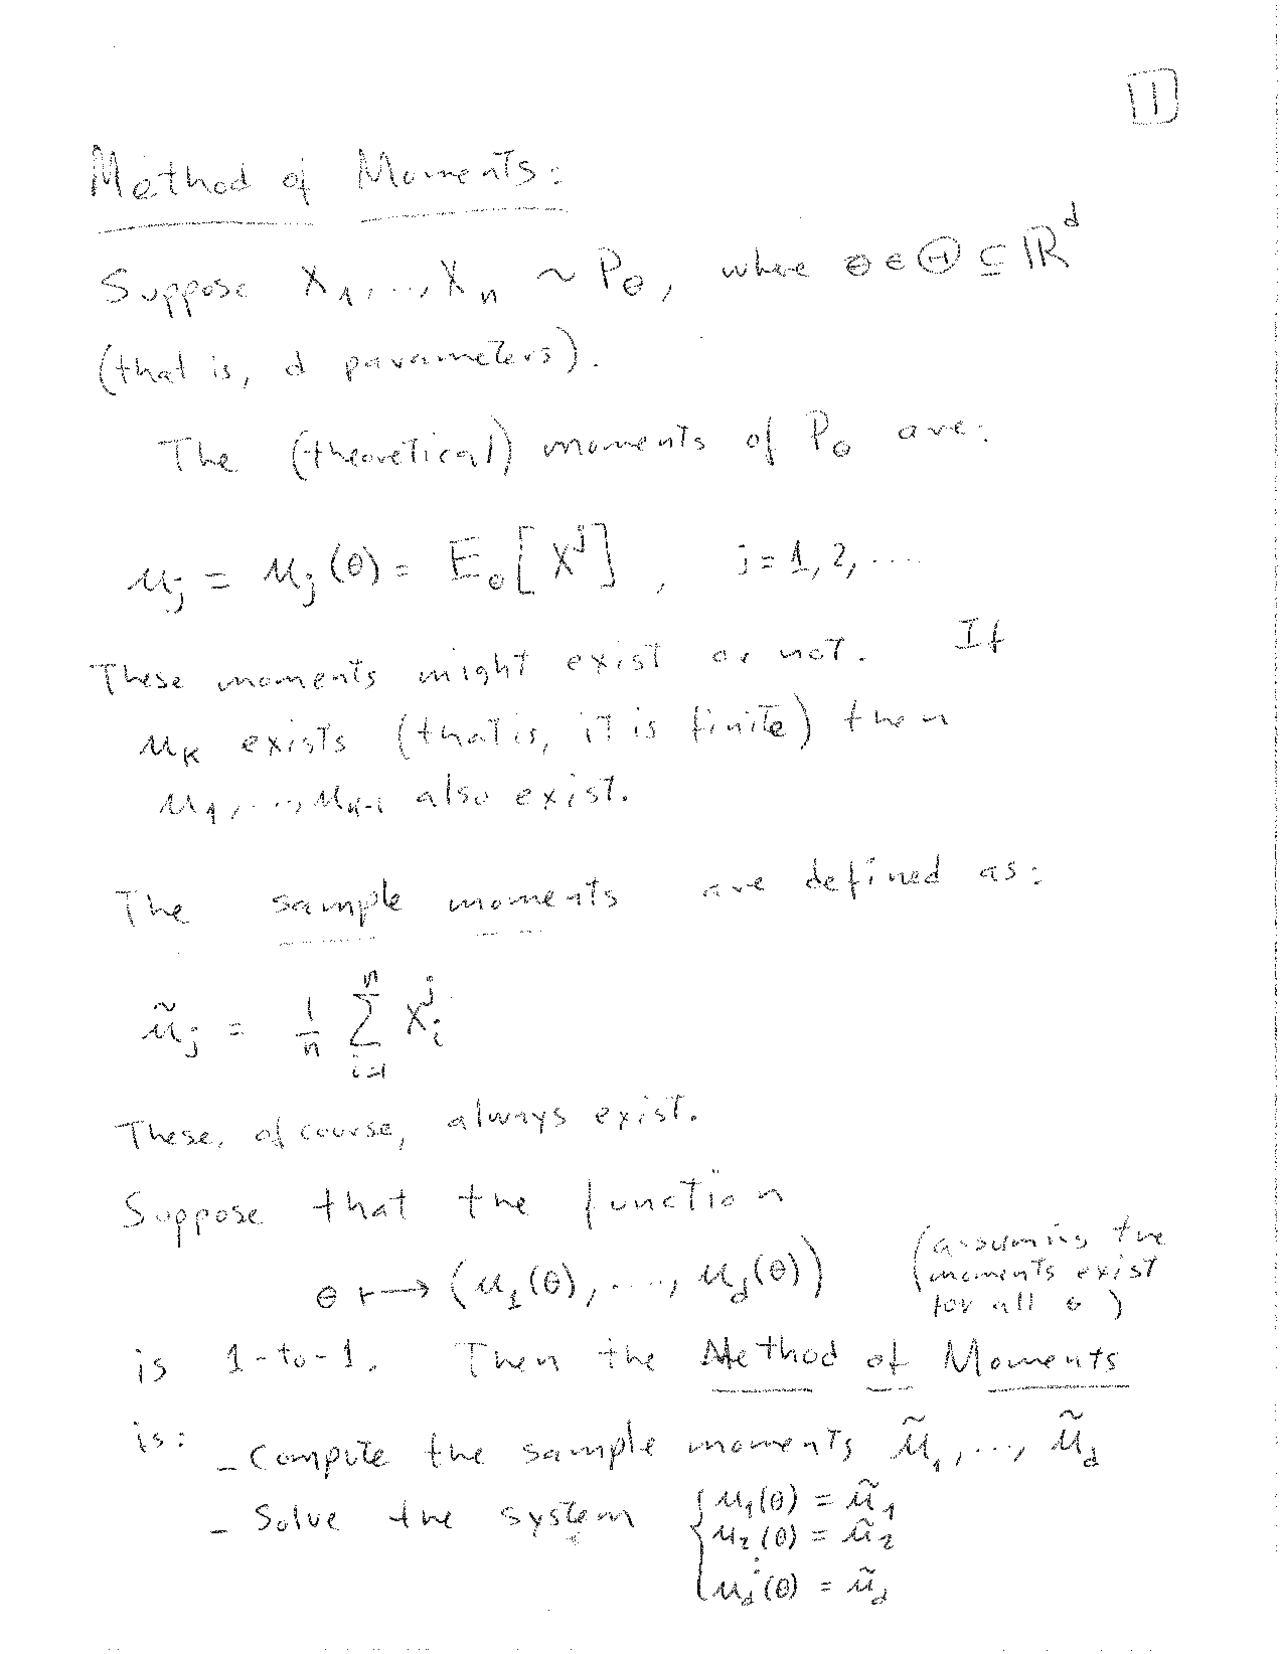 1
Method of Moments:
Suppose X₁,..,Xₙ ~ P_θ, where θ ∈ Θ ⊆ ℝ^d
(that is, d parameters).
The (theoretical) moments of P_θ are:
μ_j = μ_j(θ) = E_θ[X^j], j = 1, 2, ....
These moments might exist or not. If
μ_k exists (that is, it is finite) then
μ₁,...,μ_{k-1} also exist.
The sample moments are defined as:
μ̃_j = 1/n ∑_{i=1}^{n} X_i^j
These, of course, always exist.
Suppose that the function
θ ↦ (μ₁(θ), ...., μ_d(θ)) (assuming the
moments exist
for all θ)
is 1-to-1. Then the Method of Moments
is: - Compute the sample moments μ̃₁, ..., μ̃_d
- Solve the system { μ₁(θ) = μ̃₁
μ₂(θ) = μ̃₂
⋮
μ_d(θ) = μ̃_d